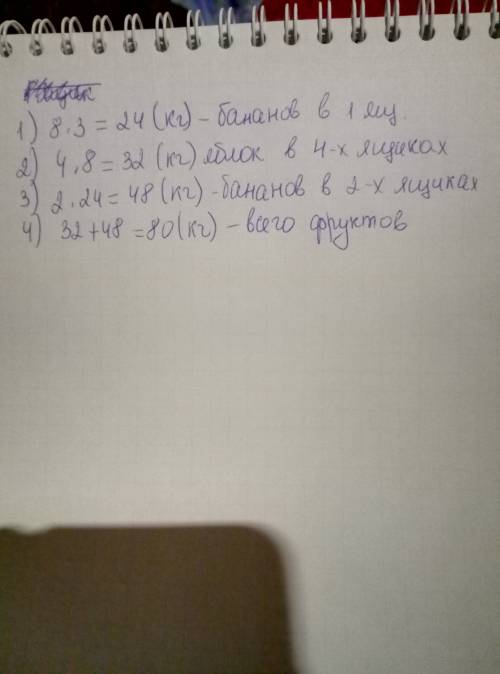 1) 8·3=24(кг)-бананов в 1 ящ.
2) 4·8=32(кг) яблок в 4-х ящиках
3) 2·24=48(кг)-бананов в 2-х ящиках
4) 32+48=80(кг)-всего фруктов